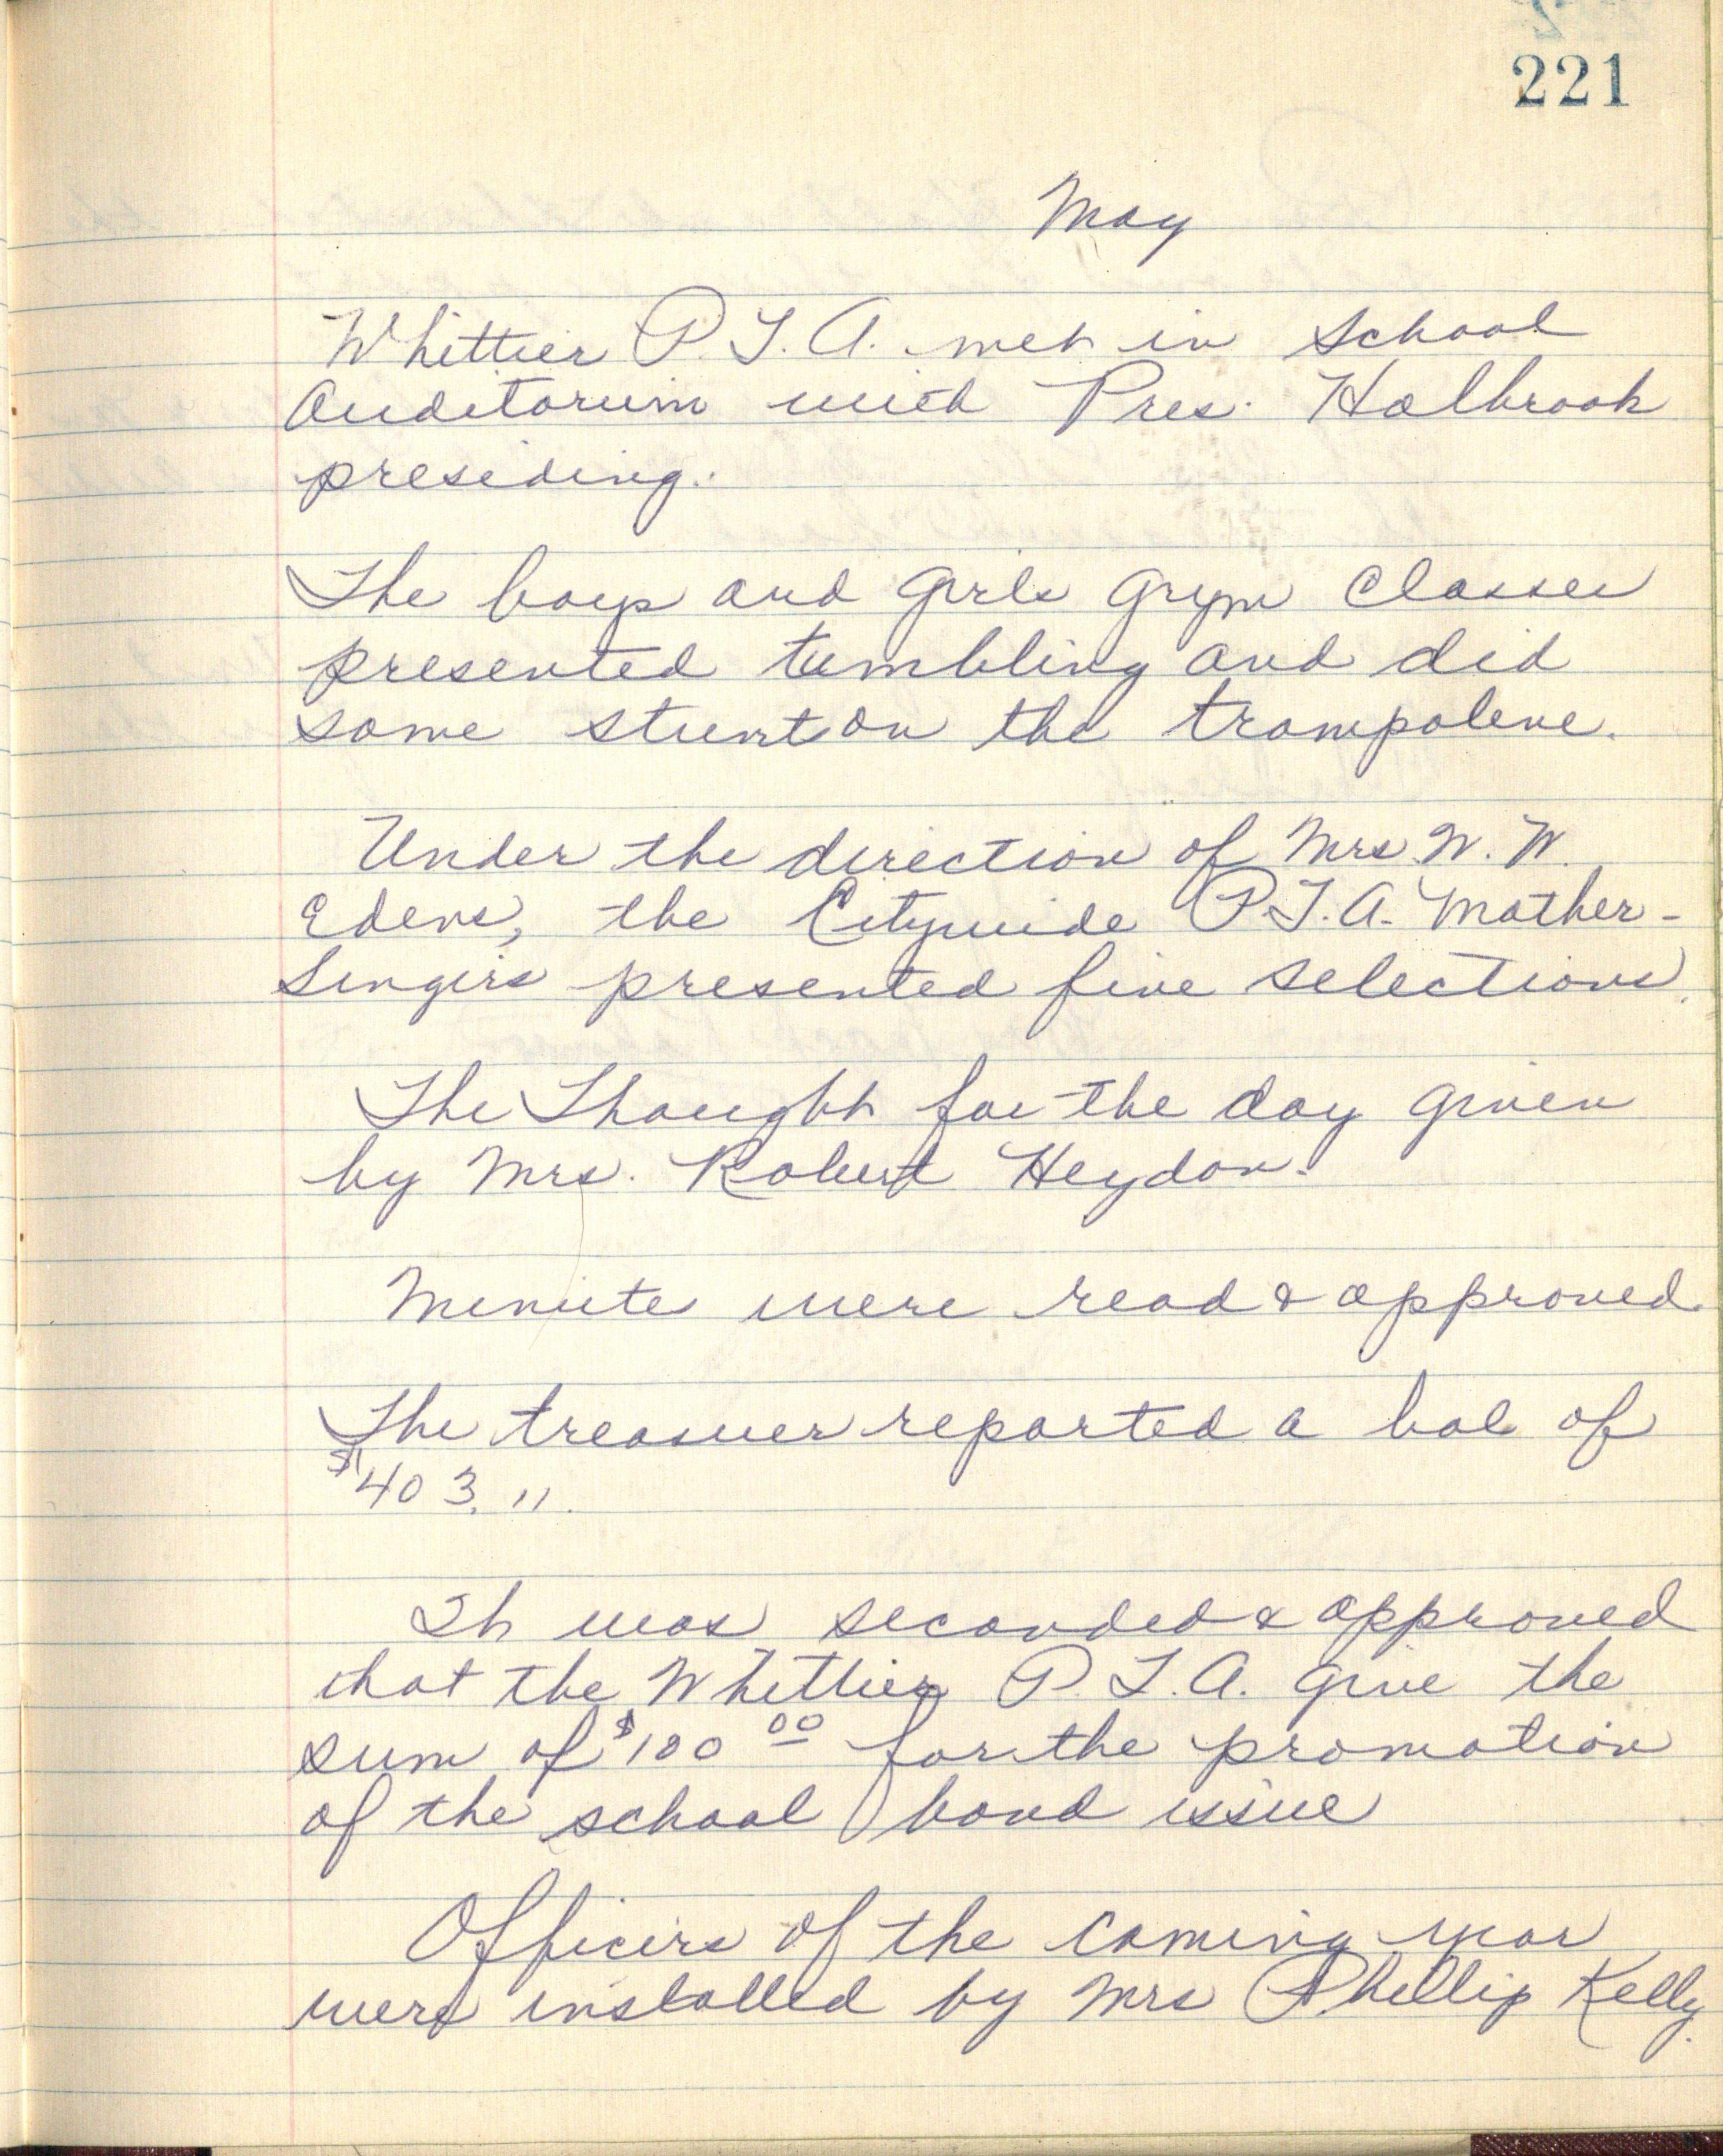 221
May
Whittier P.T.A. met in School
Auditorium with Pres. Holbrook
presiding.
The boys and girls Gym Classes
presented tumbling and did
some stunts on the trampolene.
Under the direction of Mrs. W. W.
Edens, the Citywide P.T.A. Mother-
Singers presented five selections.
The Thought for the day given
by Mrs. Robert Heydon.
Minute were read & approved.
The treasuer reported a bal of
$403.11.
It was seconded & approved
that the Whittier P.T.A. give the
sum of $100 00 for the promotion
of the school bond issue
Officers of the coming year
were installed by Mrs Phillip Kelly.